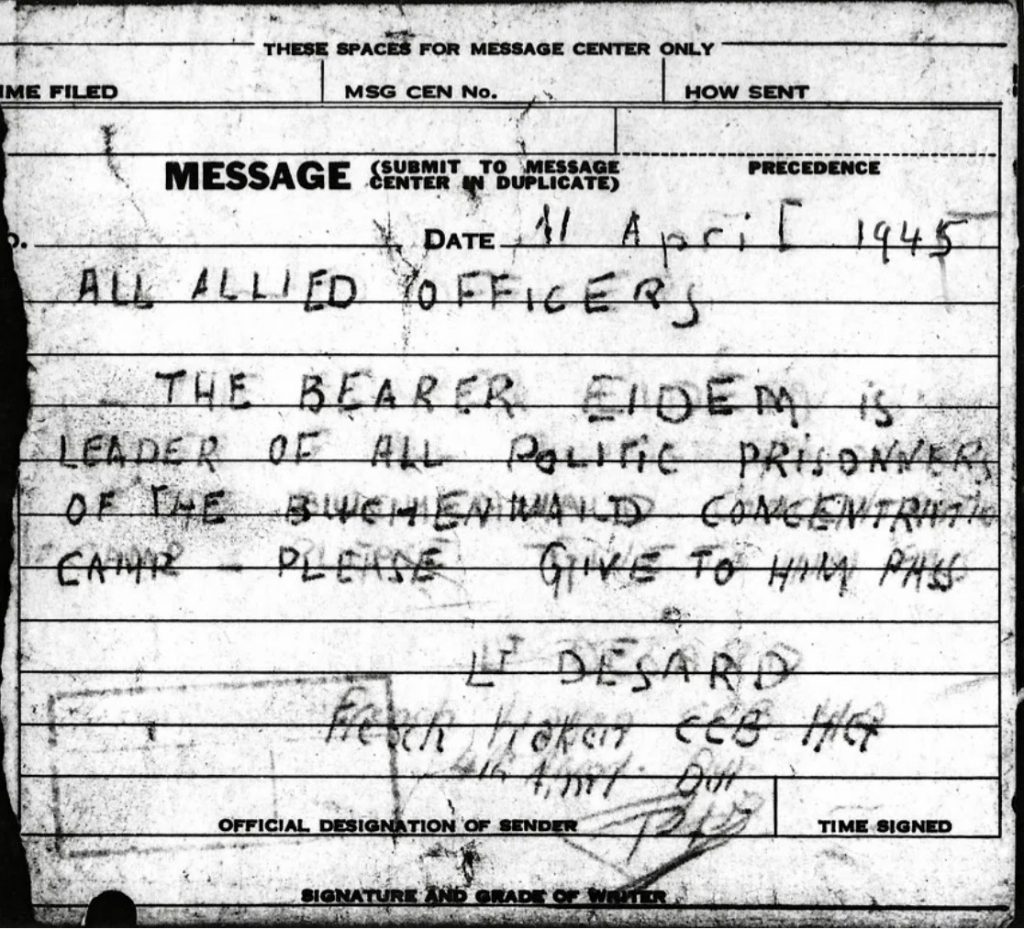 THESE SPACES FOR MESSAGE CENTER ONLY
IME FILED MSG CEN No. HOW SENT
MESSAGE (SUBMIT TO MESSAGE CENTER IN DUPLICATE) PRECEDENCE
DATE 11 April 1945
ALL ALLIED OFFICERS
THE BEARER EIDEM is
LEADER OF ALL POLITIC PRISONNERS
OF THE BUCHENWALD CONCENTRATIO
CAMP - PLEASE GIVE TO HIM PASS
LT DESARD
CCB
4th Arm. Div
OFFICIAL DESIGNATION OF SENDER TIME SIGNED
SIGNATURE AND GRADE OF WRITER